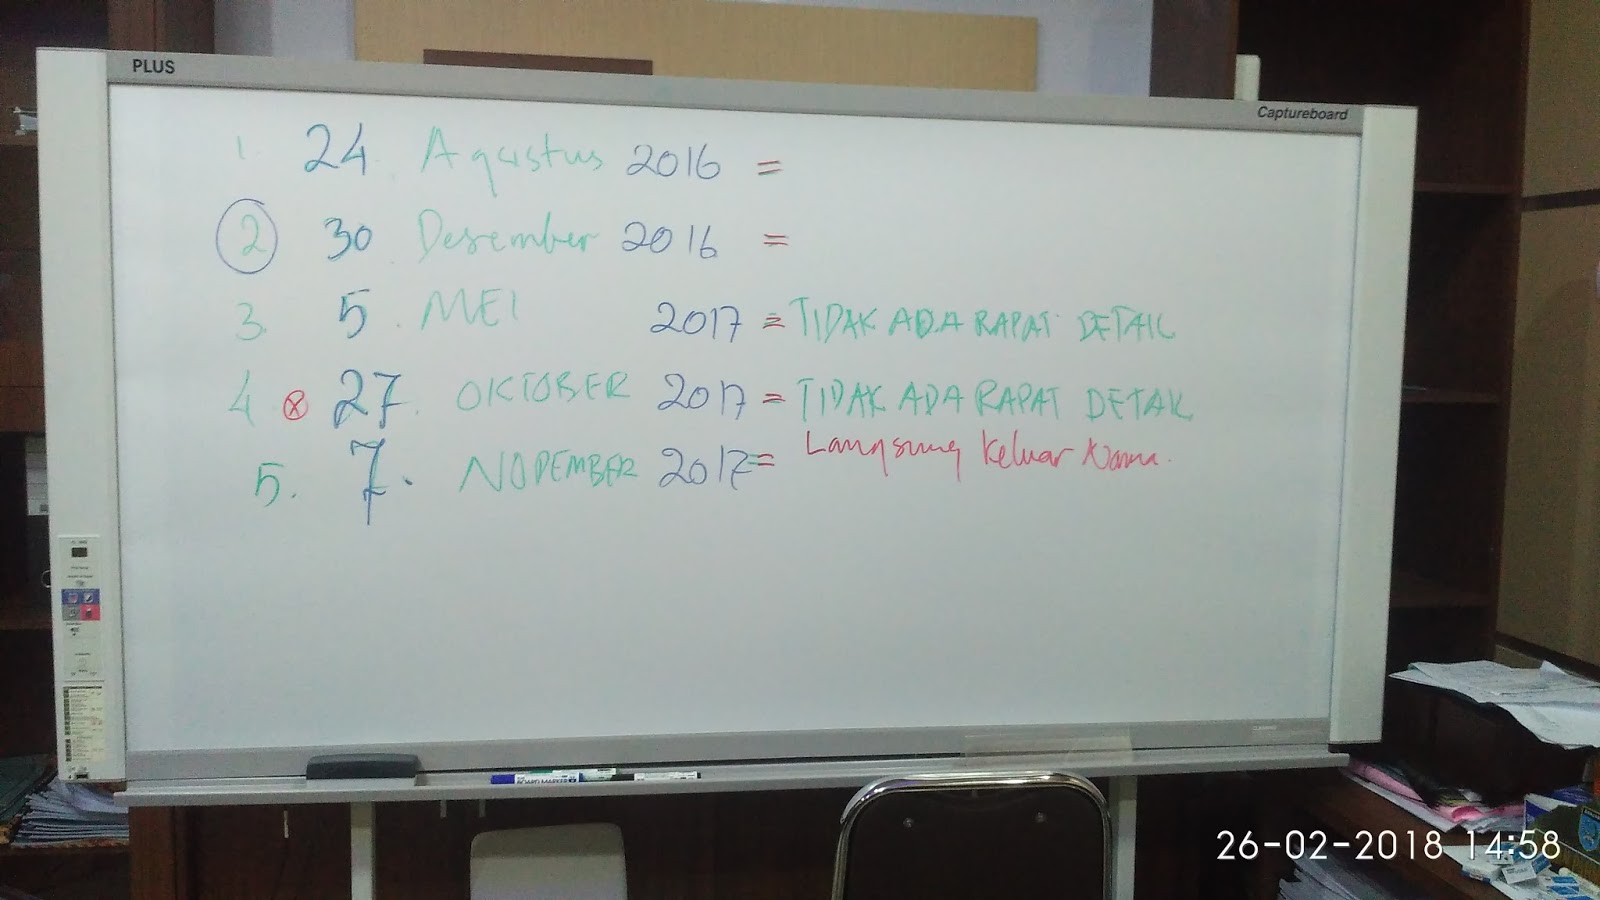 PLUS
Captureboard
1. 24. Agustus 2016 =
2 30. Desember 2016 =
3. 5. MEI 2017 = TIDAK ADA RAPAT DETAIL
4 ⊗ 27. OKTOBER 2017 = TIDAK ADA RAPAT DETAIL
5. 7. NOPEMBER 2017 = Langsung keluar Nama.
BOARD MARKER
26-02-2018 14:58